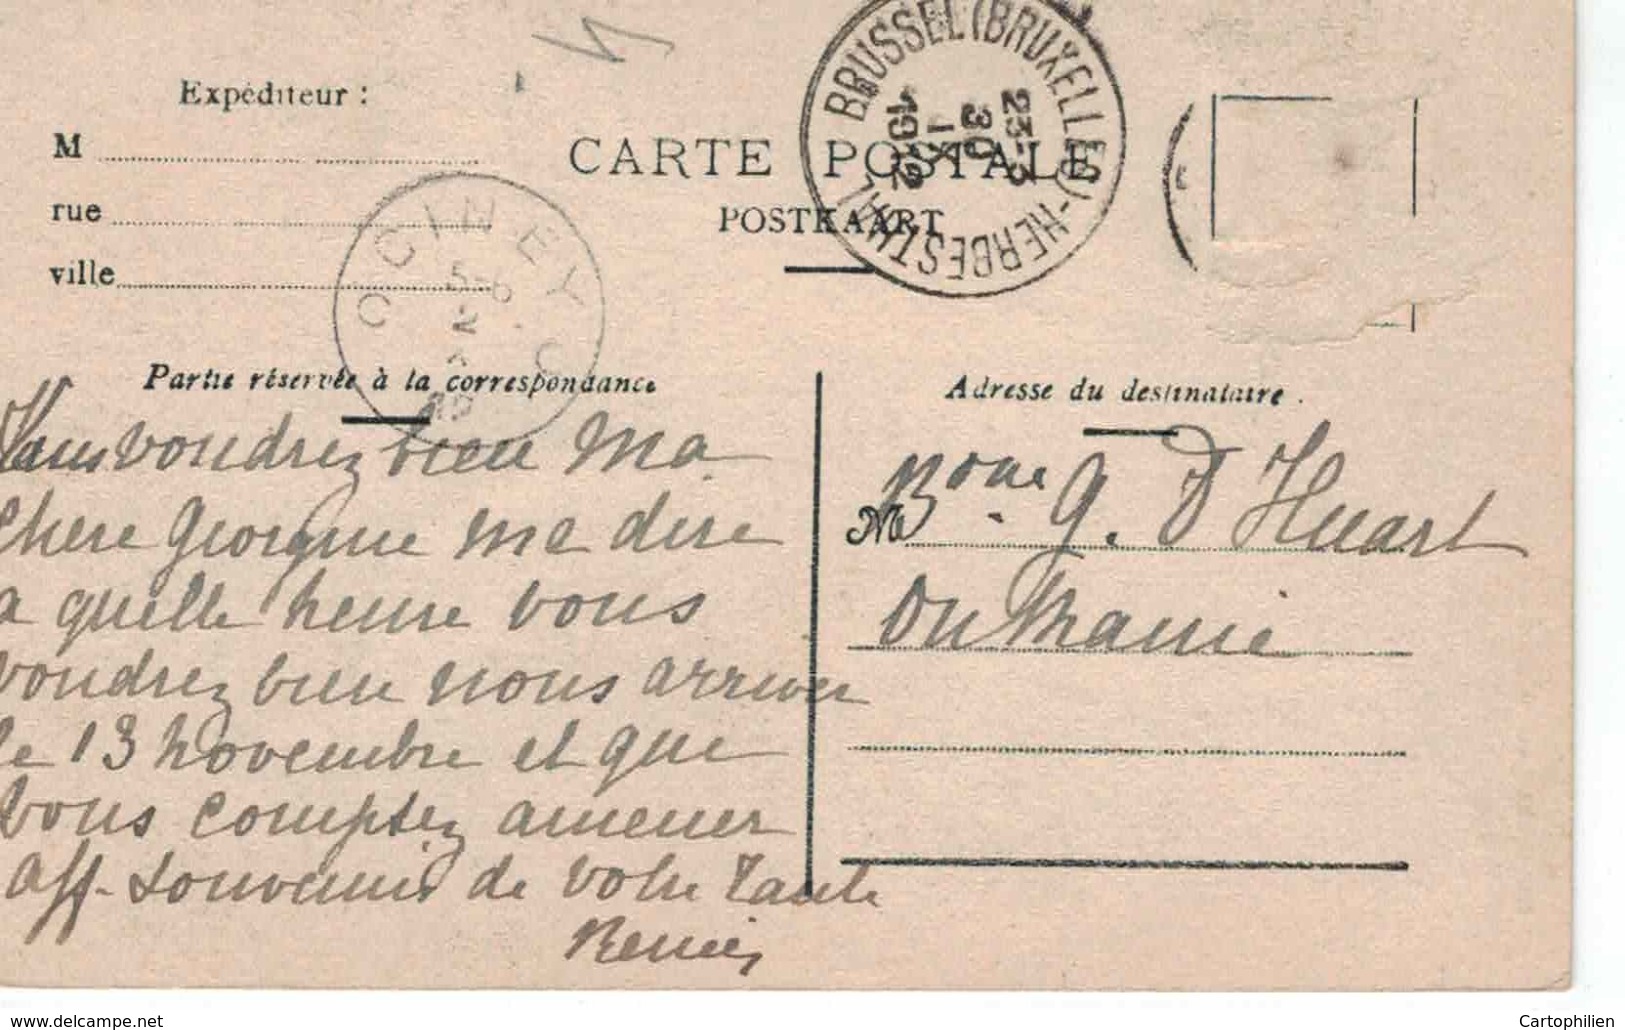 Expéditeur :
M
rue
ville
CARTE POSTALE
POSTKAART
BRUSSEL (BRUXELLES)-HERBESTHAL
23-3
30
IX
1912
CINEY
5-6
Partie réservée à la correspondance
Adresse du destinataire.
Vous voudrez bien Ma
chere Georgine me dire
a quelle heure vous
voudrez bien nous arriver
le 13 novembre et que
vous comptez amener
aff. souvenir de votre Tante
M
Bonne G. D Huart
Onthaine
www.delcampe.net
Cartophilien